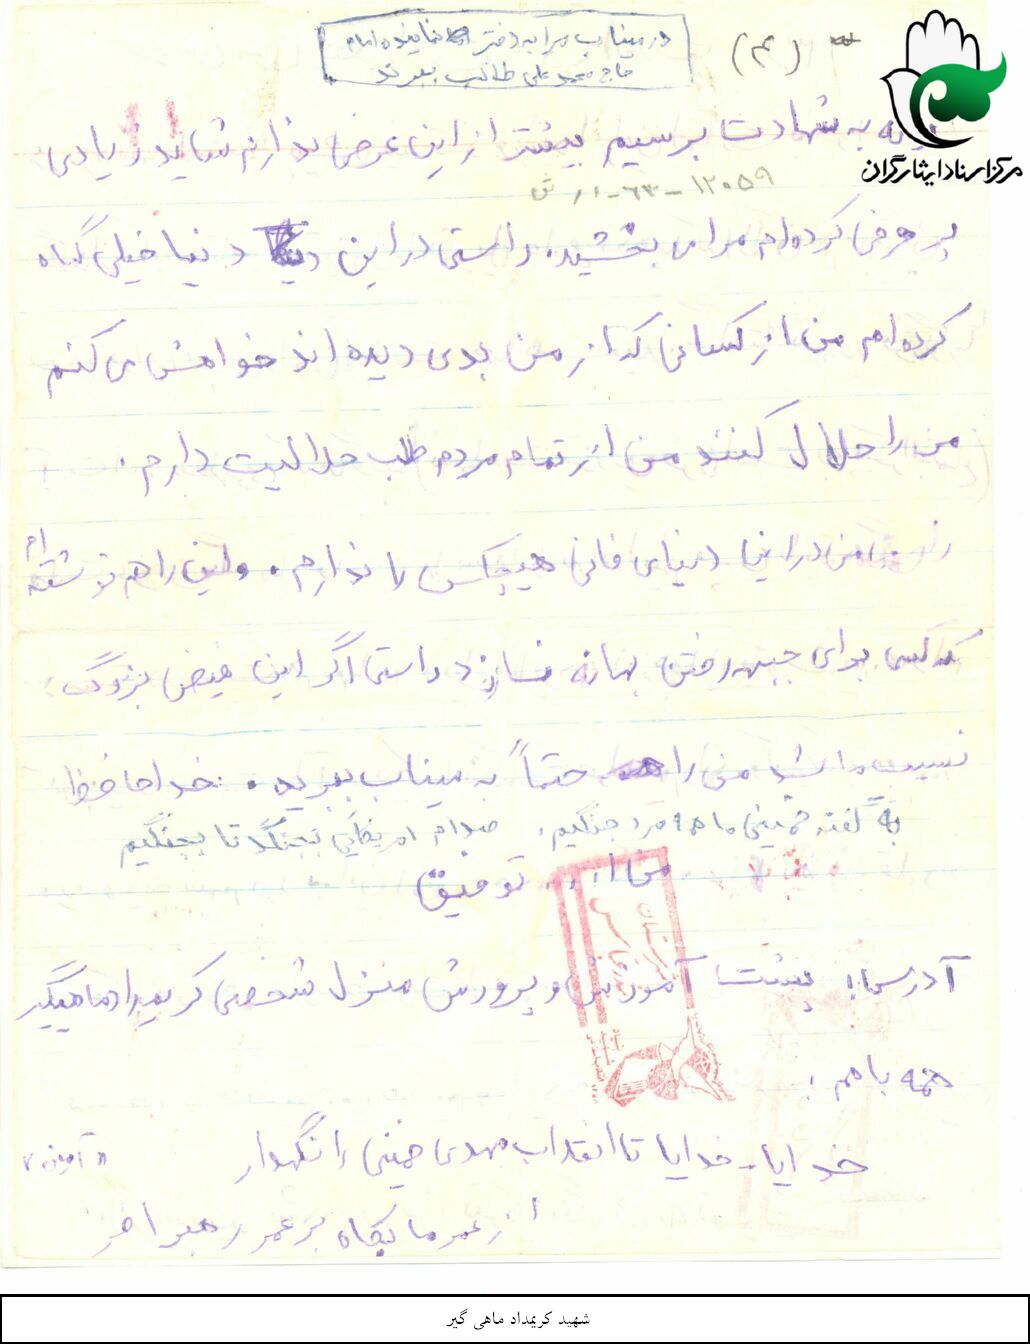 در میناب مرا به دفتر نماینده امام
حاج محمد علی طالب ببرند
(۴)
به شهادت برسیم بیشتر از این عرضی ندارم شاید زیادی
مرکز اسناد ایثارگران
۱۲۰۵۹ - ۶۳ - ار ش
پر حرفی کرده ام مرا می بخشید. راستی در این دنیا خیلی گناه
کرده ام من از کسانی که از من بدی دیده اند خواهش می کنم
من را حلال کنند من از تمام مردم طلب حلالیت دارم .
من در این دنیای فانی هیچکس را ندارم . ولی این را هم نوشته ام
که کسی برای جبهه رفتن بهانه نسازد راستی اگر این فیض بزرگ
نسیب ما شد من را حتماً به میناب ببرید . خداحافظ
به گفته خمینی ما مرد جنگیم . صدام امریکایی بجنگد تا بجنگیم
توفیق
آدرس: پشت آموزش و پرورش منزل شخصی کریمداد ماهیگیر
همه با هم :
خدایا - خدایا تا انقلاب مهدی خمینی را نگهدار
" آمین "
از عمر ما بکاه بر عمر رهبر افز
شهید کریمداد ماهی گیر